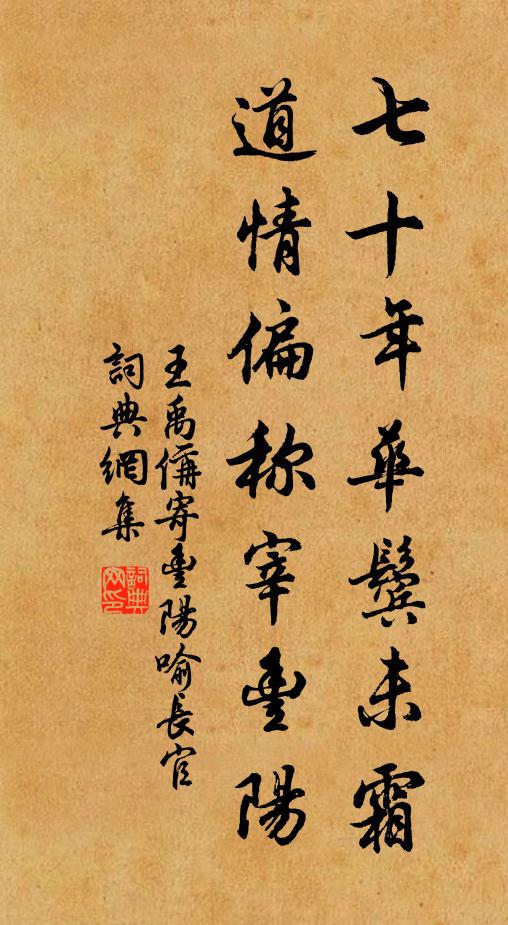 七十年華鬢未霜
道情偏称宰豊陽
王禹偁寄豊陽喻長官
詞典網集
詞典網印